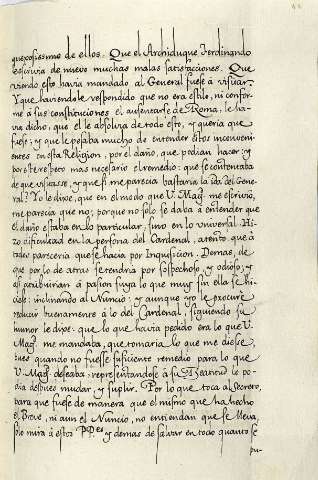 quexosissimo de ellos. Que el Archiduque Ferdinando
escrivia de nuevo muchas malas satisfacciones. Que
viendo esto havia mandado al General fuese à visitar.
Y que haviendole respondido que no era estilo, ni confor-
me à sus constituciones el ausentarse de Roma, le ha-
via dicho, que el le absolvia de todo esto, y queria que
fuese; y que le pesaba mucho de entender estos inconveni-
entes en esta Religion, por el daño, que podian hacer; y
por este respeto mas necesario el remedio: que se contentaba
de que visitasse, y que si me parecia bastaria la ida del Gene-
ral? Yo le dixe, que en el modo que V. Magd. me escrivio,
me parecia que no; porque no solo se daba à entender que
el daño estaba en lo particular, sino en lo universal. Hi-
zo dificuldad en la persona del Cardenal, atento que à
todos pareceria que se hacia por Inquisicion. Demas, de
que por lo de atras se tendria por sospechoso, y odioso; y
assi atribuirian à pasion suya lo que muy sin ella se hi-
ciese: inclinando al Nuncio; y aunque yo le procuré
reducir buenamente à lo del Cardenal, siguiendo su
humor le dixe: que lo que havia pedido era lo que V.
Magd. me mandaba, que tomaria lo que me diese,
pues quando no fuesse suficiente remedio para lo que
V. Magd. deseaba: representandose à su Beatitud le po-
dia despues mudar, y suplir. Por lo que toca al Secreto,
para que fuese de manera que el mismo que ha hecho
el Breve, ni aun el Nuncio, no entiendan que se lleva,
solo mira à estos PP.es y demas de salvar en todo quanto se
pu-